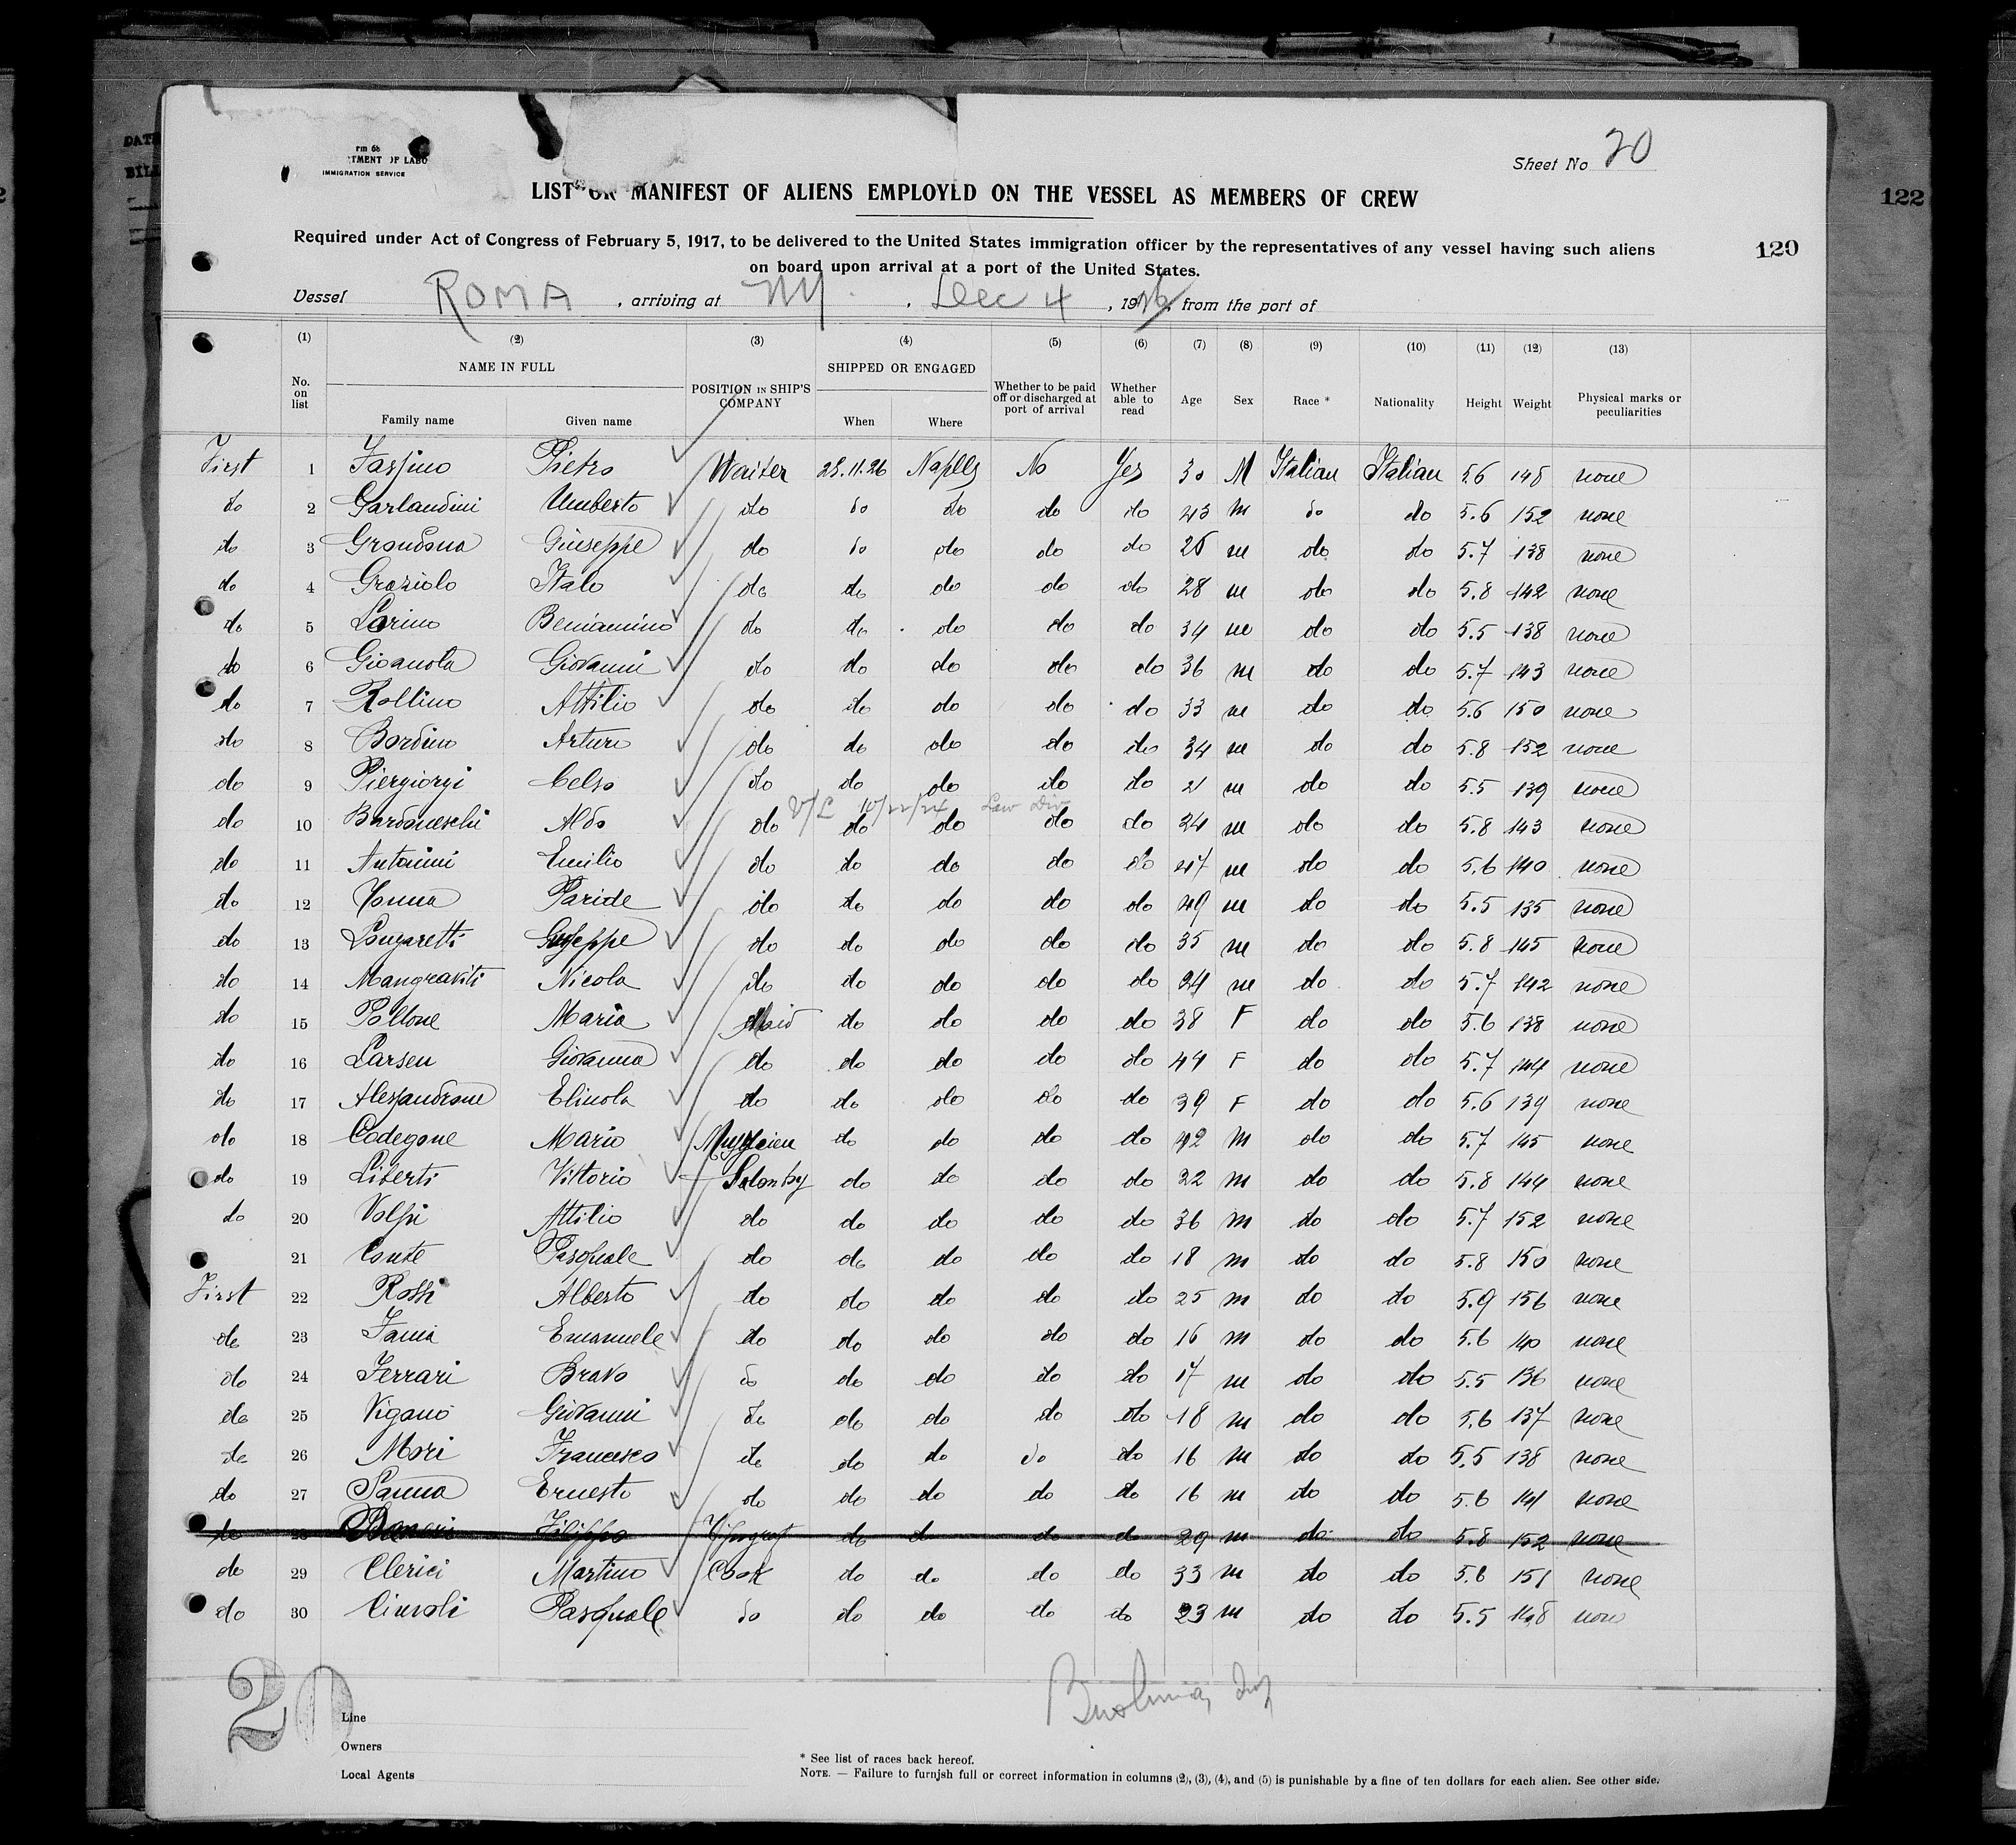 DATE
122
rm 68
TMENT OF LABO
IMMIGRATION SERVICE
Sheet No 20
LIST OR MANIFEST OF ALIENS EMPLOYED ON THE VESSEL AS MEMBERS OF CREW
Required under Act of Congress of February 5, 1917, to be delivered to the United States immigration officer by the representatives of any vessel having such aliens
on board upon arrival at a port of the United States.
120
Vessel ROMA , arriving at NY , Dec 4 , 1926, from the port of
(1) (2) (3) (4) (5) (6) (7) (8) (9) (10) (11) (12) (13)
No. on list NAME IN FULL Family name Given name POSITION IN SHIP'S COMPANY SHIPPED OR ENGAGED When Where Whether to be paid off or discharged at port of arrival Whether able to read Age Sex Race * Nationality Height Weight Physical marks or peculiarities
First 1 Fassino Pietro Waiter 28.11.26 Naples No Yes 30 M Italian Italian 5.6 148 none
do 2 Garlandini Umberto do do do do do 43 m do do 5.6 152 none
do 3 Grondona Giuseppe do do do do do 26 m do do 5.7 138 none
do 4 Graziolo Italo do do do do do 28 m do do 5.8 142 none
do 5 Lorino Beniamino do do do do do 34 m do do 5.5 138 none
do 6 Gioanola Giovanni do do do do do 36 m do do 5.7 143 none
do 7 Rollino Attilio do do do do do 33 m do do 5.6 150 none
do 8 Bordino Arturo do do do do do 34 m do do 5.8 152 none
do 9 Piergiorgi Celso do do do do do 21 m do do 5.5 139 none
V/L 10/22/24 Law Div
do 10 Bardoneschi Aldo do do do do do 24 m do do 5.8 143 none
do 11 Antonini Emilio do do do do do 47 m do do 5.6 140 none
do 12 Paride do do do do do 49 m do do 5.5 135 none
do 13 Longaretti Giuseppe do do do do do 35 m do do 5.8 145 none
do 14 Mangraviti Nicola do do do do do 24 m do do 5.7 142 none
do 15 Pollone Maria Maid do do do do 38 F do do 5.6 138 none
do 16 Larsen Giovanna do do do do do 44 F do do 5.7 144 none
do 17 Alessandrone Elinola do do do do do 39 F do do 5.6 139 none
do 18 Codegone Mario do do do do 42 M do do 5.7 145 none
do 19 Liberti Vittorio do do do do 22 m do do 5.8 144 none
do 20 Volpi Attilio do do do do do 36 m do do 5.7 152 none
21 Conte Pasquale do do do do do 18 m do do 5.8 150 none
First 22 Rossi Alberto do do do do do 25 m do do 5.9 156 none
do 23 Fania Emanuele do do do do do 16 m do do 5.6 140 none
do 24 Ferrari Bravo do do do do do 17 m do do 5.5 136 none
do 25 Viganò Giovanni do do do do do 18 m do do 5.6 137 none
do 26 Mori Francesco do do do do do 16 m do do 5.5 138 none
do 27 Sanna Ernesto do do do do do 16 m do do 5.6 141 none
do 28 Filippo do do do do 29 m do do 5.8 152 none
do 29 Clerici Martino Cook do do do do 33 m do do 5.6 151 none
do 30 Pasquale do do do do do 23 m do do 5.5 148 none
20
Line
Owners
Local Agents
* See list of races back hereof.
NOTE. — Failure to furnish full or correct information in columns (2), (3), (4), and (5) is punishable by a fine of ten dollars for each alien. See other side.